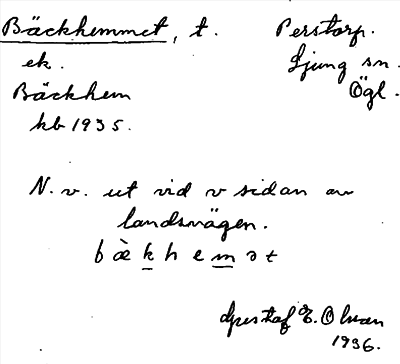 Bäckhemmet, t. Perstorp.
ek. Ljung sn.
Bäckhem Ögl.
kb 1935.
N. v. ut vid v sidan av
landsvägen.
bæ̀k̲hem̲ət
Gustaf E. Olson
1936.